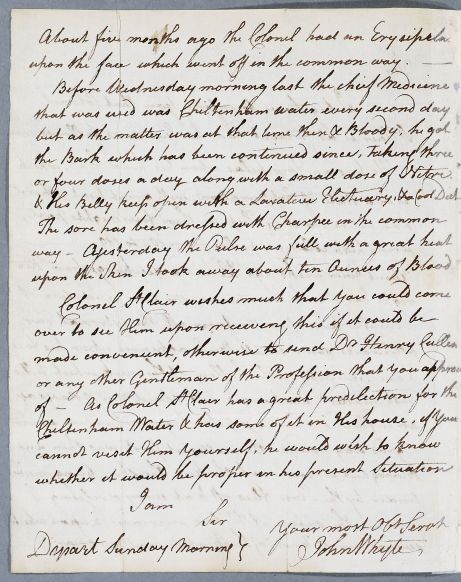 About five months ago the Colonel had an Erysipelas
upon the face which went off in the common way.
Before Wednesday morning last the chief Medicine
that was used was Cheltenham water every second day
but as the matter was at that time thin & Bloody, he got
the Bark which has been continued since, taking three
or four doses a day along with a small dose of Nitre
& His Belly keep open with a Laxative Electuary, & a Cool Diet
The sore has been dressed with Charpee in the common
way – As yesterday the Pulse was full with a great heat
upon the Skin I took away about ten Ounces of Blood
Colonel St Clair wishes much that you could come
over to see Him upon receiving this if it could be
made convenient, otherwise to send Dr Henry Cullen
or any other Gentleman of the Profession that you approve
of – As Colonel St Clair has a great predilection for the
Cheltenham Water & has some of it in His house, if you
cannot visit Him yourself, he would wish to know
whether it would be proper in his present Situation
I am
Sir
Your most Obt Servt
Dysart Sunday Morning }
John Whyte